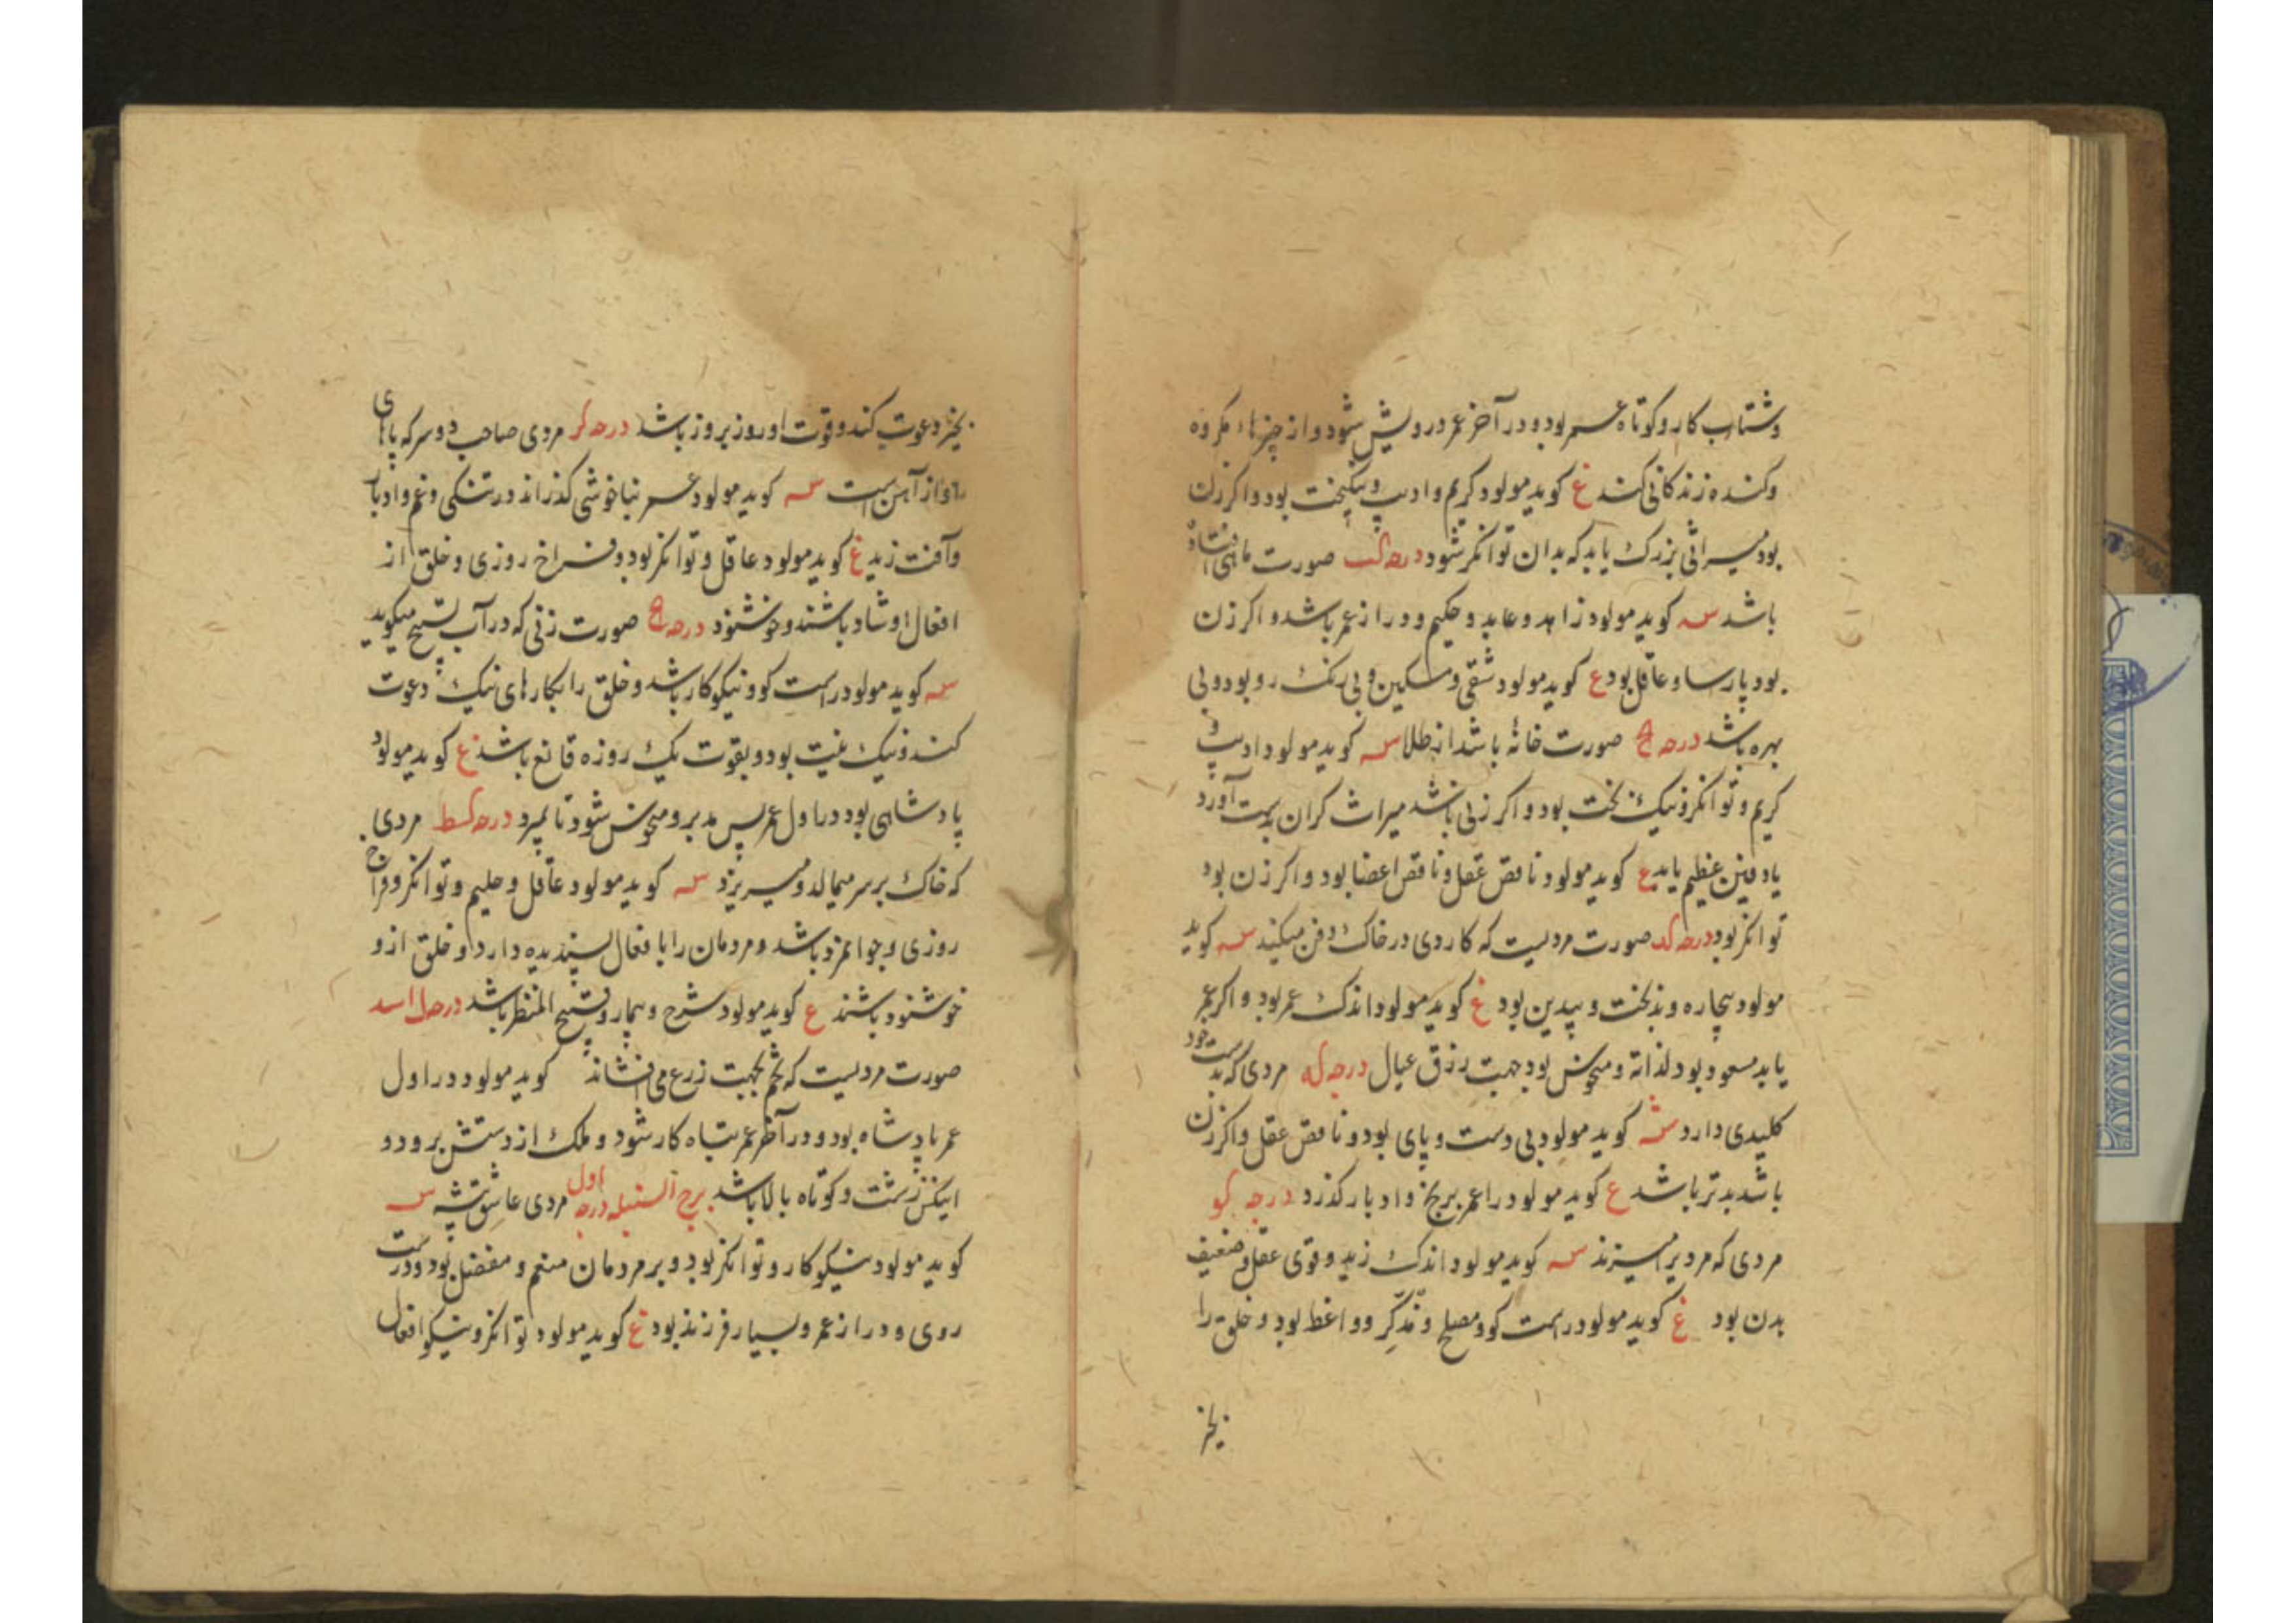 وشتاب کار و کوتاه عمر بود و در آخر عمر درویش شود و از چیزهاء مکروه
وکنده زندکانی کند غ کوید مولود کریم و ادیب و نیکبخت بود و اکر زن
بود میراثی بزرک یابد که بدان توانکر شود درجه کب صورت ماهی افتاده
باشد س کوید مولود زاهد و عابد و حکیم و دراز عمر باشد و اکر زن
بود پارسا و عاقل بود ع کوید مولود شقی و مسکین و بی رنک رو بود و بی
بهره باشد درجه کج صورت خانهٔ باشد از طلا س کوید مولود ادیب و
کریم و توانکر و نیک بخت بود و اکر زنی باشد میراث کران بدست آورد
یا دفین عظیم یابد ع کوید مولود ناقص عقل و ناقص اعضا بود و اکر زن بود
توانکر بود درجه کد صورت مردیست که کاردی در خاک دفن میکند س کوید
مولود بیچاره و بدبخت و بیدین بود غ کوید مولود اندک عمر بود و اکر عمر
یابد مسعود بود لذاته و منحوش بود جهت رزق عیال درجه که مردی که بدست خود
کلیدی دارد س کوید مولود بی دست و پای بود و ناقص عقل و اکر زن
باشد بدتر باشد ع کوید مولود را عمر برنج و ادبار کذرد درجه کو
مردی که مردیرا میزند س کوید مولود اندک زید و قوی عقل و ضعیف
بدن بود غ کوید مولود راست کو و مصلح و مذکّر و واعظ بود و خلق را
بخیر
بخیر دعوت کند و قوت او روز بروز باشد درجه کز مردی صاحب دو سر که پاهای
او از آهن است س کوید مولود عمر بناخوشی کذراند در تنکی و غم و ادبار
و آفت زید غ کوید مولود عاقل و توانکر بود و فراخ روزی و خلق از
افعال او شاد باشند و خوشنود درجه کح صورت زنی که در آب تسبیح میکوید
س کوید مولود راست کو و نیکوکار باشد و خلق را بکارهای نیک دعوت
کند و نیک نیت بود و بقوت یک روزه قانع باشد غ کوید مولود
پادشاهی بود در اول عمر پس مدبر و منحوش شود تا بمیرد درجه کط مردی
که خاک بر سر میمالد و میریزد س کوید مولود عاقل و حلیم و توانکر و فراخ
روزی و جوانمرد باشد و مردمان را با فعال پسندیده دارد و خلق ازو
خوشنود باشند ع کوید مولود شرح و بیمار و قبیح المنظر باشد درجه ل اسد
صورت مردیست که تخم بجهت زرع می افشاند کوید مولود در اول
عمر پادشاه بود و در آخر عمر تباه کار شود و ملک از دستش برود و
لیکن زشت و کوتاه بالا باشد برج السنبله درجه اول مردی عاشق پیشه س
کوید مولود نیکوکار و توانکر بود و بر مردمان منعم و مفضل بود و درست
روی و دراز عمر و بسیار فرزند بود غ کوید مولود توانکر و نیکو افعال